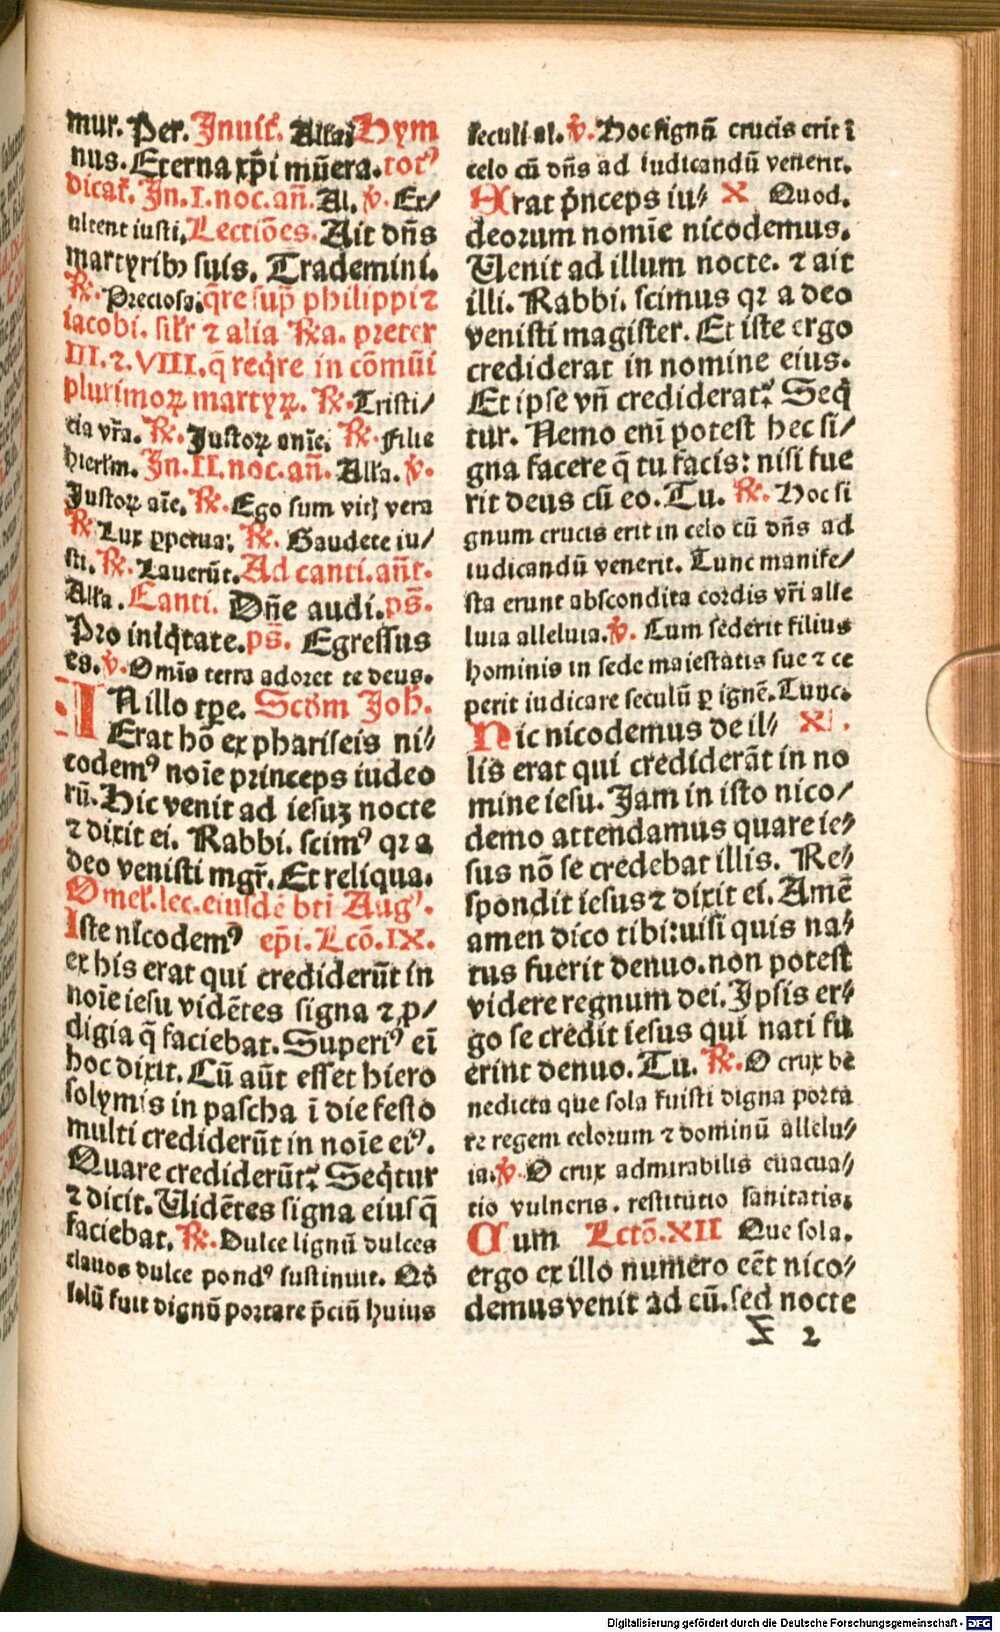 mur. Per. Inuit̃. Alła. Hym
nus. Eterna xp̃i mũera. totꝰ
dicat̃. In. I. noc. añ. Al. ℣. Ex⸗
ultent iusti. Lectiões. Ait dñs
martyribꝰ suis. Trademini.
℟. Preciosa. q̃re sup̃ philippi ⁊
iacobi. silr ⁊ alia ℟a. preter
III. ⁊. VIII. q̃ req̃re in cõmũi
plurimoꝝ martyꝝ. ℟. Tristi⸗
cia vr̃a. ℟. Iustoꝝ anĩe. ℟. Filie
hierłm. In. II. noc. añ. Alła. ℣.
Iustoꝝ aĩe. ℟. Ego sum vitꝭ vera
℟ Lux ꝑpetua. ℟. Gaudete iu⸗
sti. ℟. Lauerũt. Ad canti. añt.
Alła. Canti. Dñe audi. ps̃.
Pro iniq̃tate. ps̃. Egressus
es. ℣. Omĩs terra adoret te deus.
IN illo tꝑe. Scḋm Joh̃.
Erat hõ ex phariseis ni⸗
codemꝰ noĩe princeps iudeo
rũ. Hic venit ad iesuꝫ nocte
⁊ dixit ei. Rabbi. scimꝰ qꝛ a
deo venisti mgr̃. Et reliqua.
Omel̃. lec. eiusdẽ bti Augꝰ.
Iste nicodemꝰ ep̃i. Lcõ. IX.
ex his erat qui crediderũt in
noĩe iesu vidẽtes signa ⁊ ꝓ⸗
digia q̃ faciebat. Superiꝰ eĩ
hoc dixit. Cũ aũt esset hiero
solymis in pascha ĩ die festo
multi crediderũt in noĩe eiꝰ.
Quare crediderũt? Seq̃tur
⁊ dicit. Uidẽtes signa eius q̃
faciebat. ℟. Dulce lignũ dulces
clauos dulce pondꝰ sustinuit. Qḋ
solũ fuit dignũ portare p̃ciũ huius
seculi al. ℣. Hoc signũ crucis erit ĩ
celo cũ dñs ad iudicandũ venerit.
Erat p̃nceps iu⸗ X Quod.
deorum nomĩe nicodemus.
Uenit ad illum nocte. ⁊ ait
illi. Rabbi. scimus qꝛ a deo
venisti magister. Et iste ergo
crediderat in nomine eius.
Et ipse vñ crediderat? Seq̃
tur. Nemo enĩ potest hec si⸗
gna facere q̃ tu facis: nisi fue
rit deus cũ eo. Tu. ℟. Hoc si
gnum crucis erit in celo cũ dñs ad
iudicandũ venerit. Tunc manife⸗
sta erunt abscondita cordis vr̃i alle
luia alleluia. ℣. Cum sederit filius
hominis in sede maiestatis sue ⁊ ce
perit iudicare seculũ ꝑ ignẽ. Tunc.
Hic nicodemus de il⸗ XI.
lis erat qui crediderãt in no
mine iesu. Jam in isto nico⸗
demo attendamus quare ie⸗
sus nõ se credebat illis. Re⸗
spondit iesus ⁊ dixit ei. Amẽ
amen dico tibi: nisi quis na⸗
tus fuerit denuo. non potest
videre regnum dei. Ipsis er⸗
go se credit iesus qui nati fu
erint denuo. Tu. ℟. O crux be
nedicta que sola fuisti digna porta
re regem celorum ⁊ dominũ allelu⸗
ia. ℣. O crux admirabilis euacua⸗
tio vulneris. restitutio sanitatis.
Cum Lctõ. XII Que sola.
ergo ex illo numero eẽt nico⸗
demus venit ad eũ. sed nocte
X 2
Digitalisierung gefördert durch die Deutsche Forschungsgemeinschaft - DFG